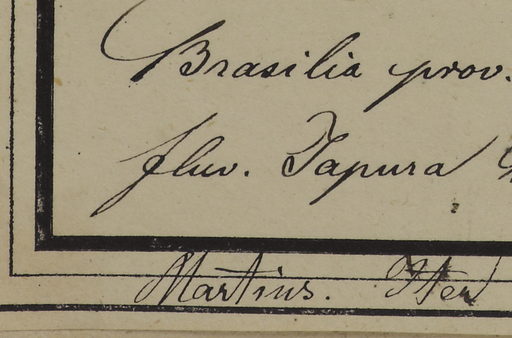 Brasilia prov.
fluv. Japura
Martius. Iter